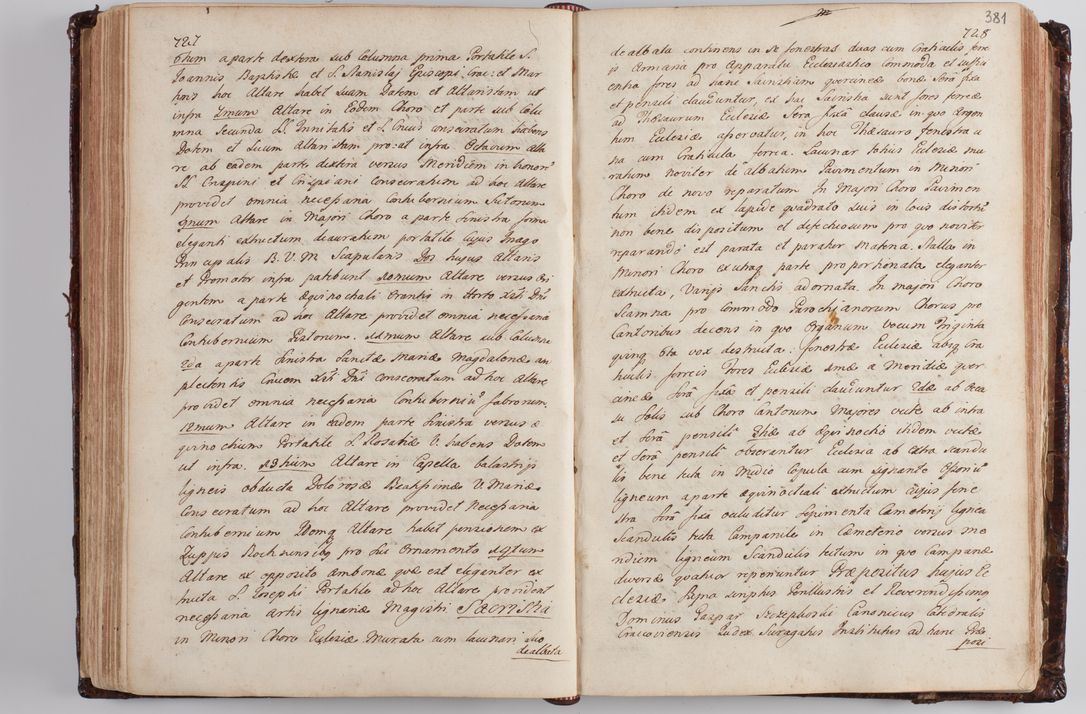 727
6tum a parte dextera sub Columna prima Portatile S.
Joannis Baptistæ et S. Stanislaj Episcopi Crac: et Mar
tyris hoc Altare habet suam Dotem et Altaristam ut
infra 7mum Altare in Eodem Choro et parte sub Colu
mna Secunda SS. Trinitatis et S. Crucis consecratum habens
Dotem et suum Altaristam pro ut infra Octavum Alta
re ab eadem parte dextera versus Meridiem in honorē
SS. Crispini et Crispiani Consecratum ad hoc Altare
providet omnia necessaria Contubernium Sutorum
9num Altare in Majori Choro a parte Sinistra forma
eleganti extructum deauratum portatile Cujus Imago
Principalis B. V. M. Scapularis Dos hujus Altaris
et Promotor infra patebunt 10mum Altare versus Ori
entem a parte æquinochali Orantis in Horto Xsti Dni
Consecratum ad hoc Altare providet omnia necessaria
Contubernium Pistorum. 11mum Altare sub Columna
2da a parte Sinistra Sanctæ Mariæ Magdalenæ am
plectentis Crucem Xsti Dni consecratum ad hoc Altare
providet omnia necessaria Contuberniū fabrorum
12mum Altare in eadem parte Sinistra versus æ
quinochium Portatile S. Rosaliæ V. habens Dotem
ut infra. 13tium Altare in Capella balastrijs
ligneis obducta Dolorosæ Beatissimæ V. Mariæ
Consecratum ad hoc Altare providet necessaria
Contubernium Altare habet pensionem ex
Zuppis pro sui Ornamento 14tum
Altare ex opposito ambonæ quæ est eleganter ex
tructa S. Josephi Portatile ad hoc Altare provident
necessaria artis lignariæ Magistri Sacristia
in Minori Choro Ecclesiæ Murata cum lacunari suo
dealbata
381
728
dealbata continens in se fenestras duas cum Craticulis fere
is Armaria pro Apparatu Ecclesiastico Commoda et suffici
entia fores ad hanc Sacristiam querceneæ bonæ Serā fixa
et pensili clauduntur, ex hac Sacristia sunt fores ferreæ
ad Thesaurum Ecclesiæ Sera fixā clausæ in quo Argen
tum Ecclesiæ asservatur, in hoc Thesauro fenestra u
na cum Craticula ferrea. Lacunar totius Ecclesiæ mu
ratum noviter de albatum Pavimentum in Minori
Choro de novo reparatum In Majori Choro Pavimen
tum itidem ex lapide quadrato suis in locis distortū
non bene dispositum et defectuosum pro quo noviter
reparando est parata et paratur Materia. Stalla in
Minori Choro ex utraq parte proportionata eleganter
extructa, Varijs Sanctis adornata. In majori Choro
Scamna pro Commodo Parochianorum Chorus pro
Cantoribus decens in quo Organum vocum triginta
quinq 6ta vox destructa: fenestræ Ecclesiæ absq Cra
ticulis ferreis Fores Ecclesiæ 1mæ a Meridie quer
ceneæ Serā fixā et pensili clauduntur 2dæ ab Occa
su Solis sub Choro Cantorum Majores vecte ab intra
et Serā pensili 3tiæ ab Æquinochio itidem vecte
et Serā pensili obserantur Ecclesia ab extra Scandu
lis bene tecta in Medio Copula cum signante
ligneum a parte æquinoctiali extructum cujus fene
stra Serā fixā occluditur Sepimenta Cæmeterij lignea
Scandulis tecta Campanile in Cæmeterio versus me
ridiem ligneum Scandulis tectum in quo Campanæ
diversæ quatuor reperiuntur Præpositus hujus Ec
clesiæ Perillustris et Reverendissimus
Dominus Gaspar Szczepkoski Canonicus Cathedralis
Cracoviensis Judex Surogatus Institutus ad hanc Præ
posi